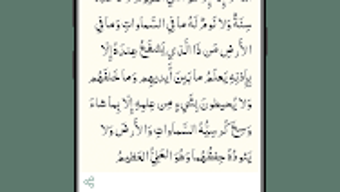 سِنَةٌ وَلَا نَوْمٌ لَهُ مَا فِي السَّمَاوَاتِ وَمَا فِي
الأَرْضِ مَن ذَا الَّذِي يَشْفَعُ عِندَهُ إِلَّا
بِإِذْنِهِ يَعْلَمُ مَا بَيْنَ أَيْدِيهِمْ وَمَا خَلْفَهُمْ
وَلَا يُحِيطُونَ بِشَيْءٍ مِنْ عِلْمِهِ إِلَّا بِمَا شَاءَ
وَسِعَ كُرْسِيُّهُ السَّمَاوَاتِ وَالأَرْضَ وَلَا
يَئُودُهُ حِفْظُهُمَا وَهُوَ الْعَلِيُّ الْعَظِيمُ